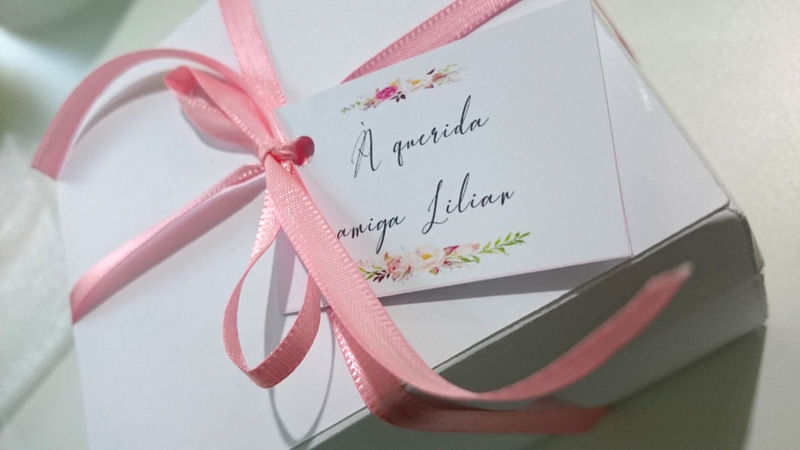 À querida
amiga Lilian